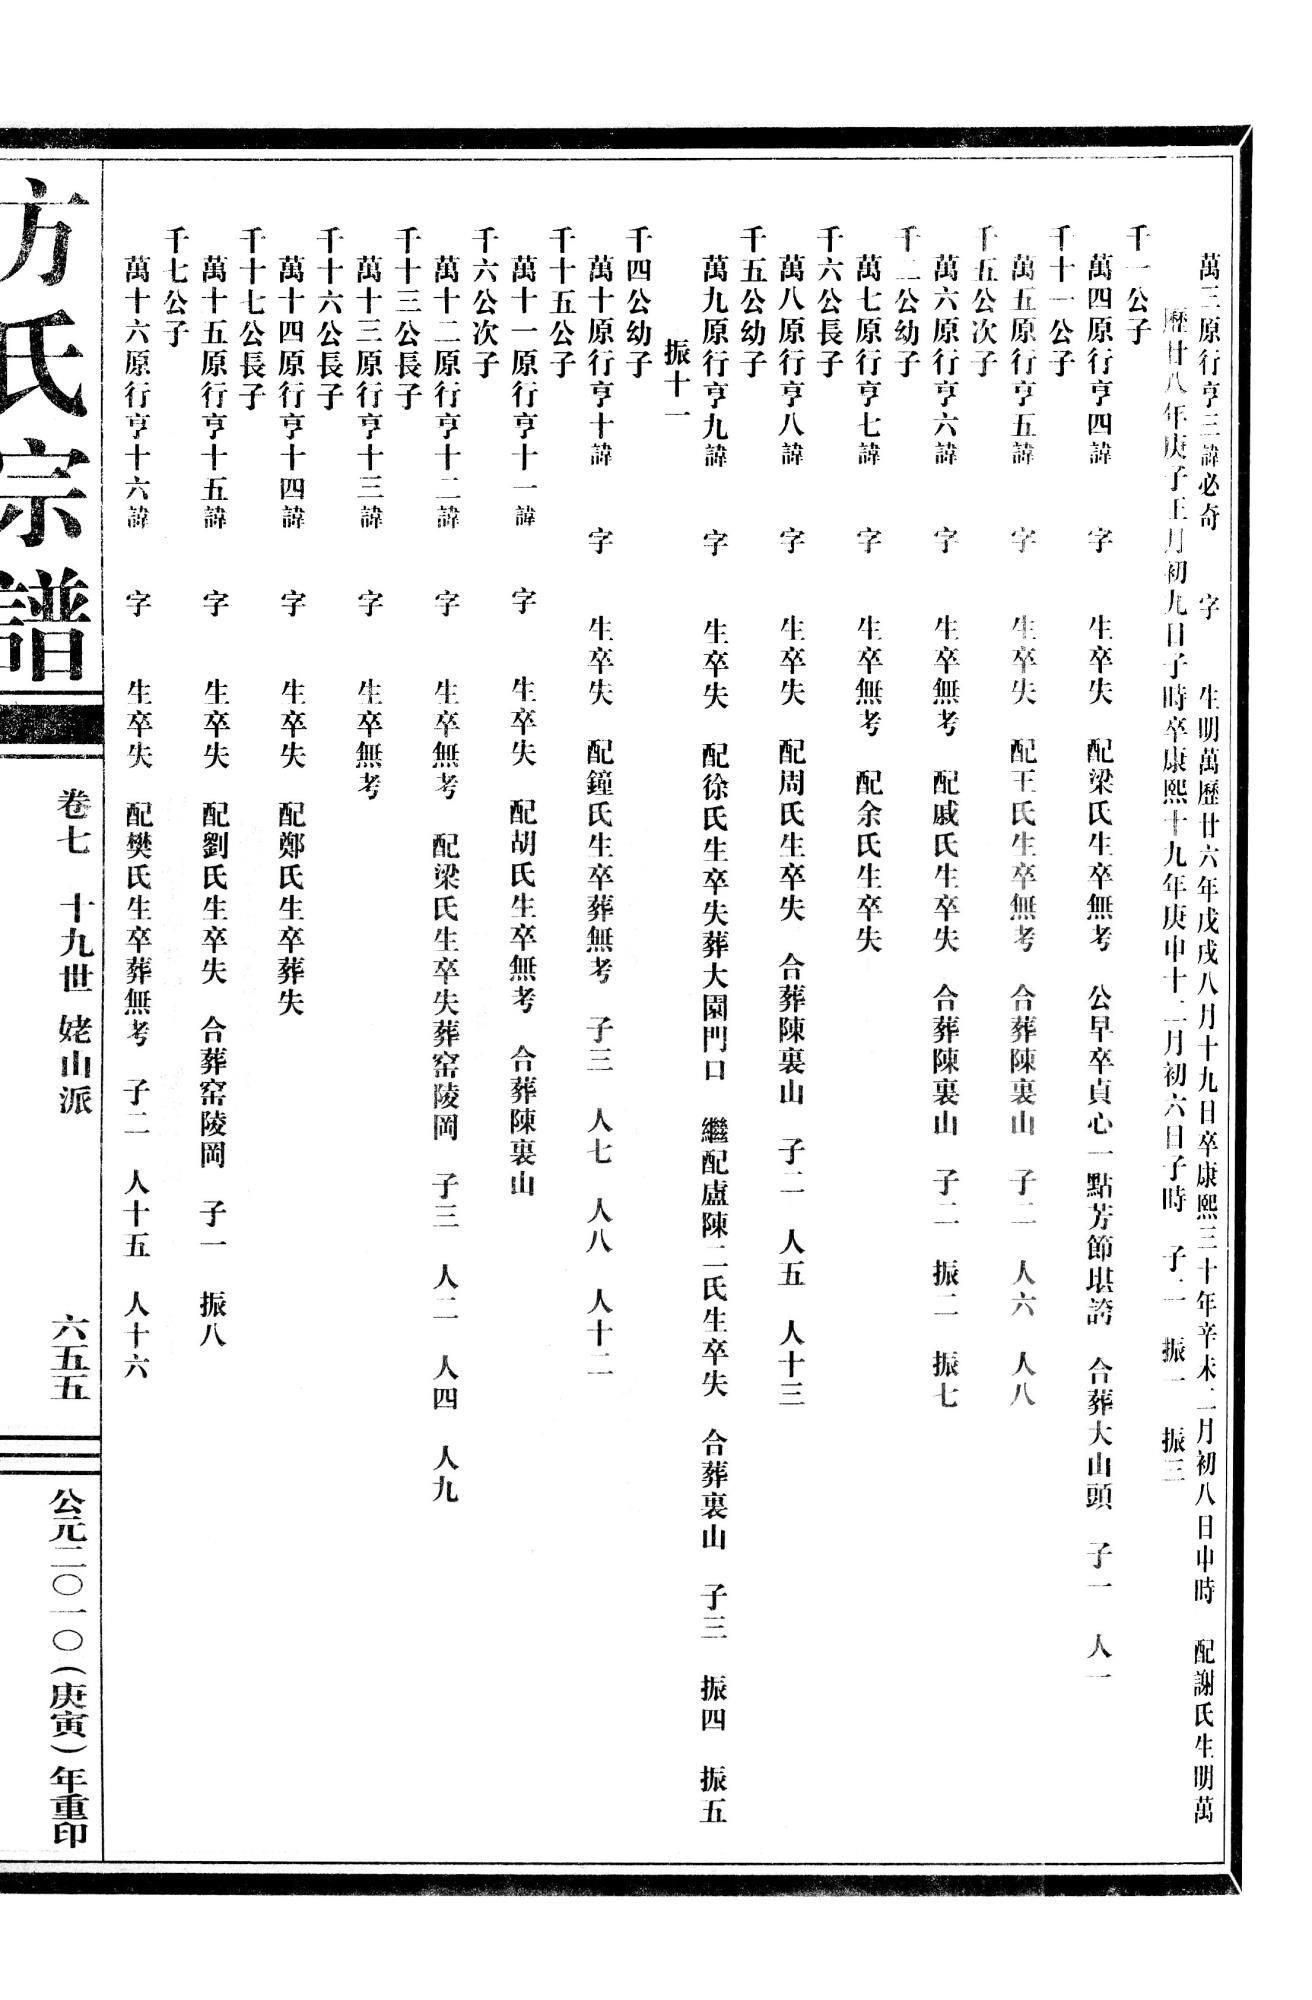 萬三原行亨三諱必奇　字　生明萬歷廿六年戊戌八月十九日卒康熙三十年辛未二月初八日申時　配謝氏生明萬
歷廿八年庚子正月初九日子時卒康熙十九年庚申十二月初六日子時　子二　振一　振三
千一公子
萬四原行亨四諱　字　生卒失　配梁氏生卒無考　公早卒貞心一點芳節堪誇　合葬大山頭　子一　人一
千十一公子
萬五原行亨五諱　字　生卒失　配王氏生卒無考　合葬陳裏山　子二　人六　人八
千五公次子
萬六原行亨六諱　字　生卒無考　配戚氏生卒失　合葬陳裏山　子二　振二　振七
千二公幼子
萬七原行亨七諱　字　生卒無考　配余氏生卒失
千六公長子
萬八原行亨八諱　字　生卒失　配周氏生卒失　合葬陳裏山　子二　人五　人十三
千五公幼子
萬九原行亨九諱　字　生卒失　配徐氏生卒失葬大園門口　繼配盧陳二氏生卒失　合葬裏山　子三　振四　振五
振十一
千四公幼子
萬十原行亨十諱　字　生卒失　配鐘氏生卒葬無考　子三　人七　人八　人十二
千十五公子
萬十一原行亨十一諱　字　生卒失　配胡氏生卒無考　合葬陳裏山
千六公次子
萬十二原行亨十二諱　字　生卒無考　配梁氏生卒失葬窑陵岡　子三　人二　人四　人九
千十三公長子
萬十三原行亨十三諱　字　生卒無考
千十六公長子
萬十四原行亨十四諱　字　生卒失　配鄭氏生卒葬失
千十七公長子
萬十五原行亨十五諱　字　生卒失　配劉氏生卒失　合葬窑陵岡　子一　振八
千七公子
萬十六原行亨十六諱　字　生卒失　配樊氏生卒葬無考　子二　人十五　人十六
方氏宗譜
卷七　十九世　姥山派
六五五
公元二〇一〇（庚寅）年重印